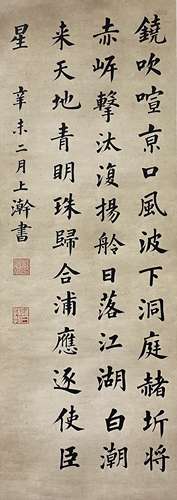 鐃吹喧亰口風波下洞庭赭圻將
赤岸擊汰復揚舲日落江湖白潮
来天地青明珠歸合浦應逐使臣
星 辛未二月上澣書